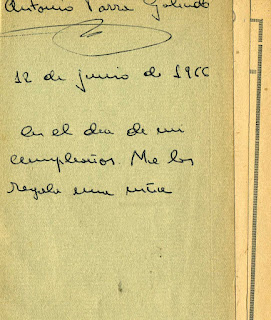 Antonio Parra Galindo
12 de junio de 1966
en el dia de mi
cumpleaños. Me los
regala una niña